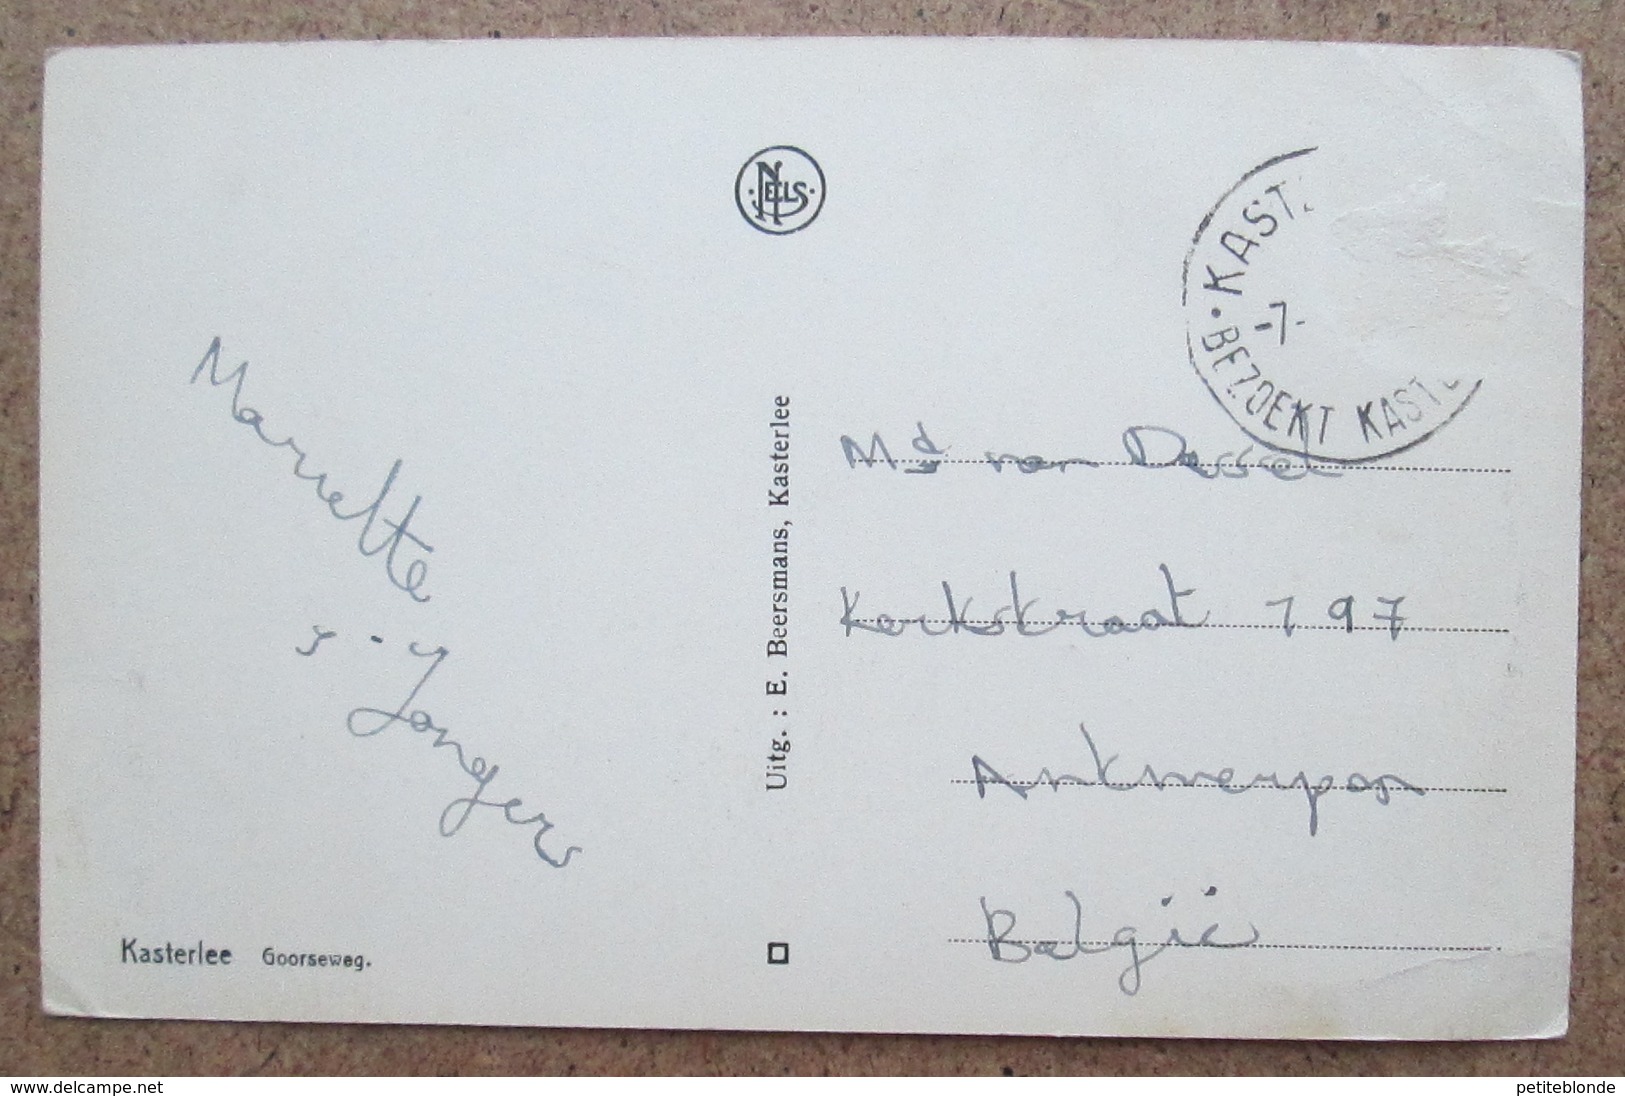 NELS
KAST
-7-
BEZOEKT KASTE
Mariette
Jongers
Uitg. : E. Beersmans, Kasterlee
Md van Dessel
Kerkstraat 197
Antwerpen
België
Kasterlee Goorseweg.
www.delcampe.net
petiteblonde